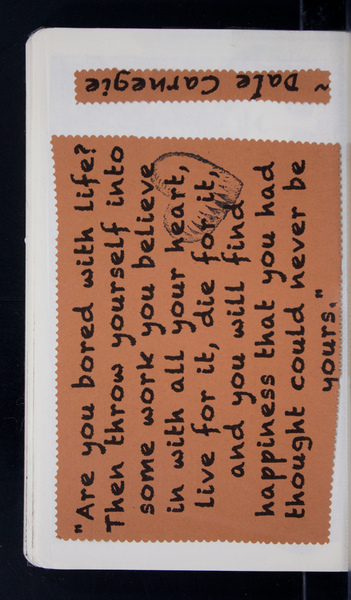 "Are you bored with life?
Then throw yourself into
some work you believe
in with all your heart,
live for it, die for it,
and you will find
happiness that you had
thought could never be
yours."
~ Dale Carnegie